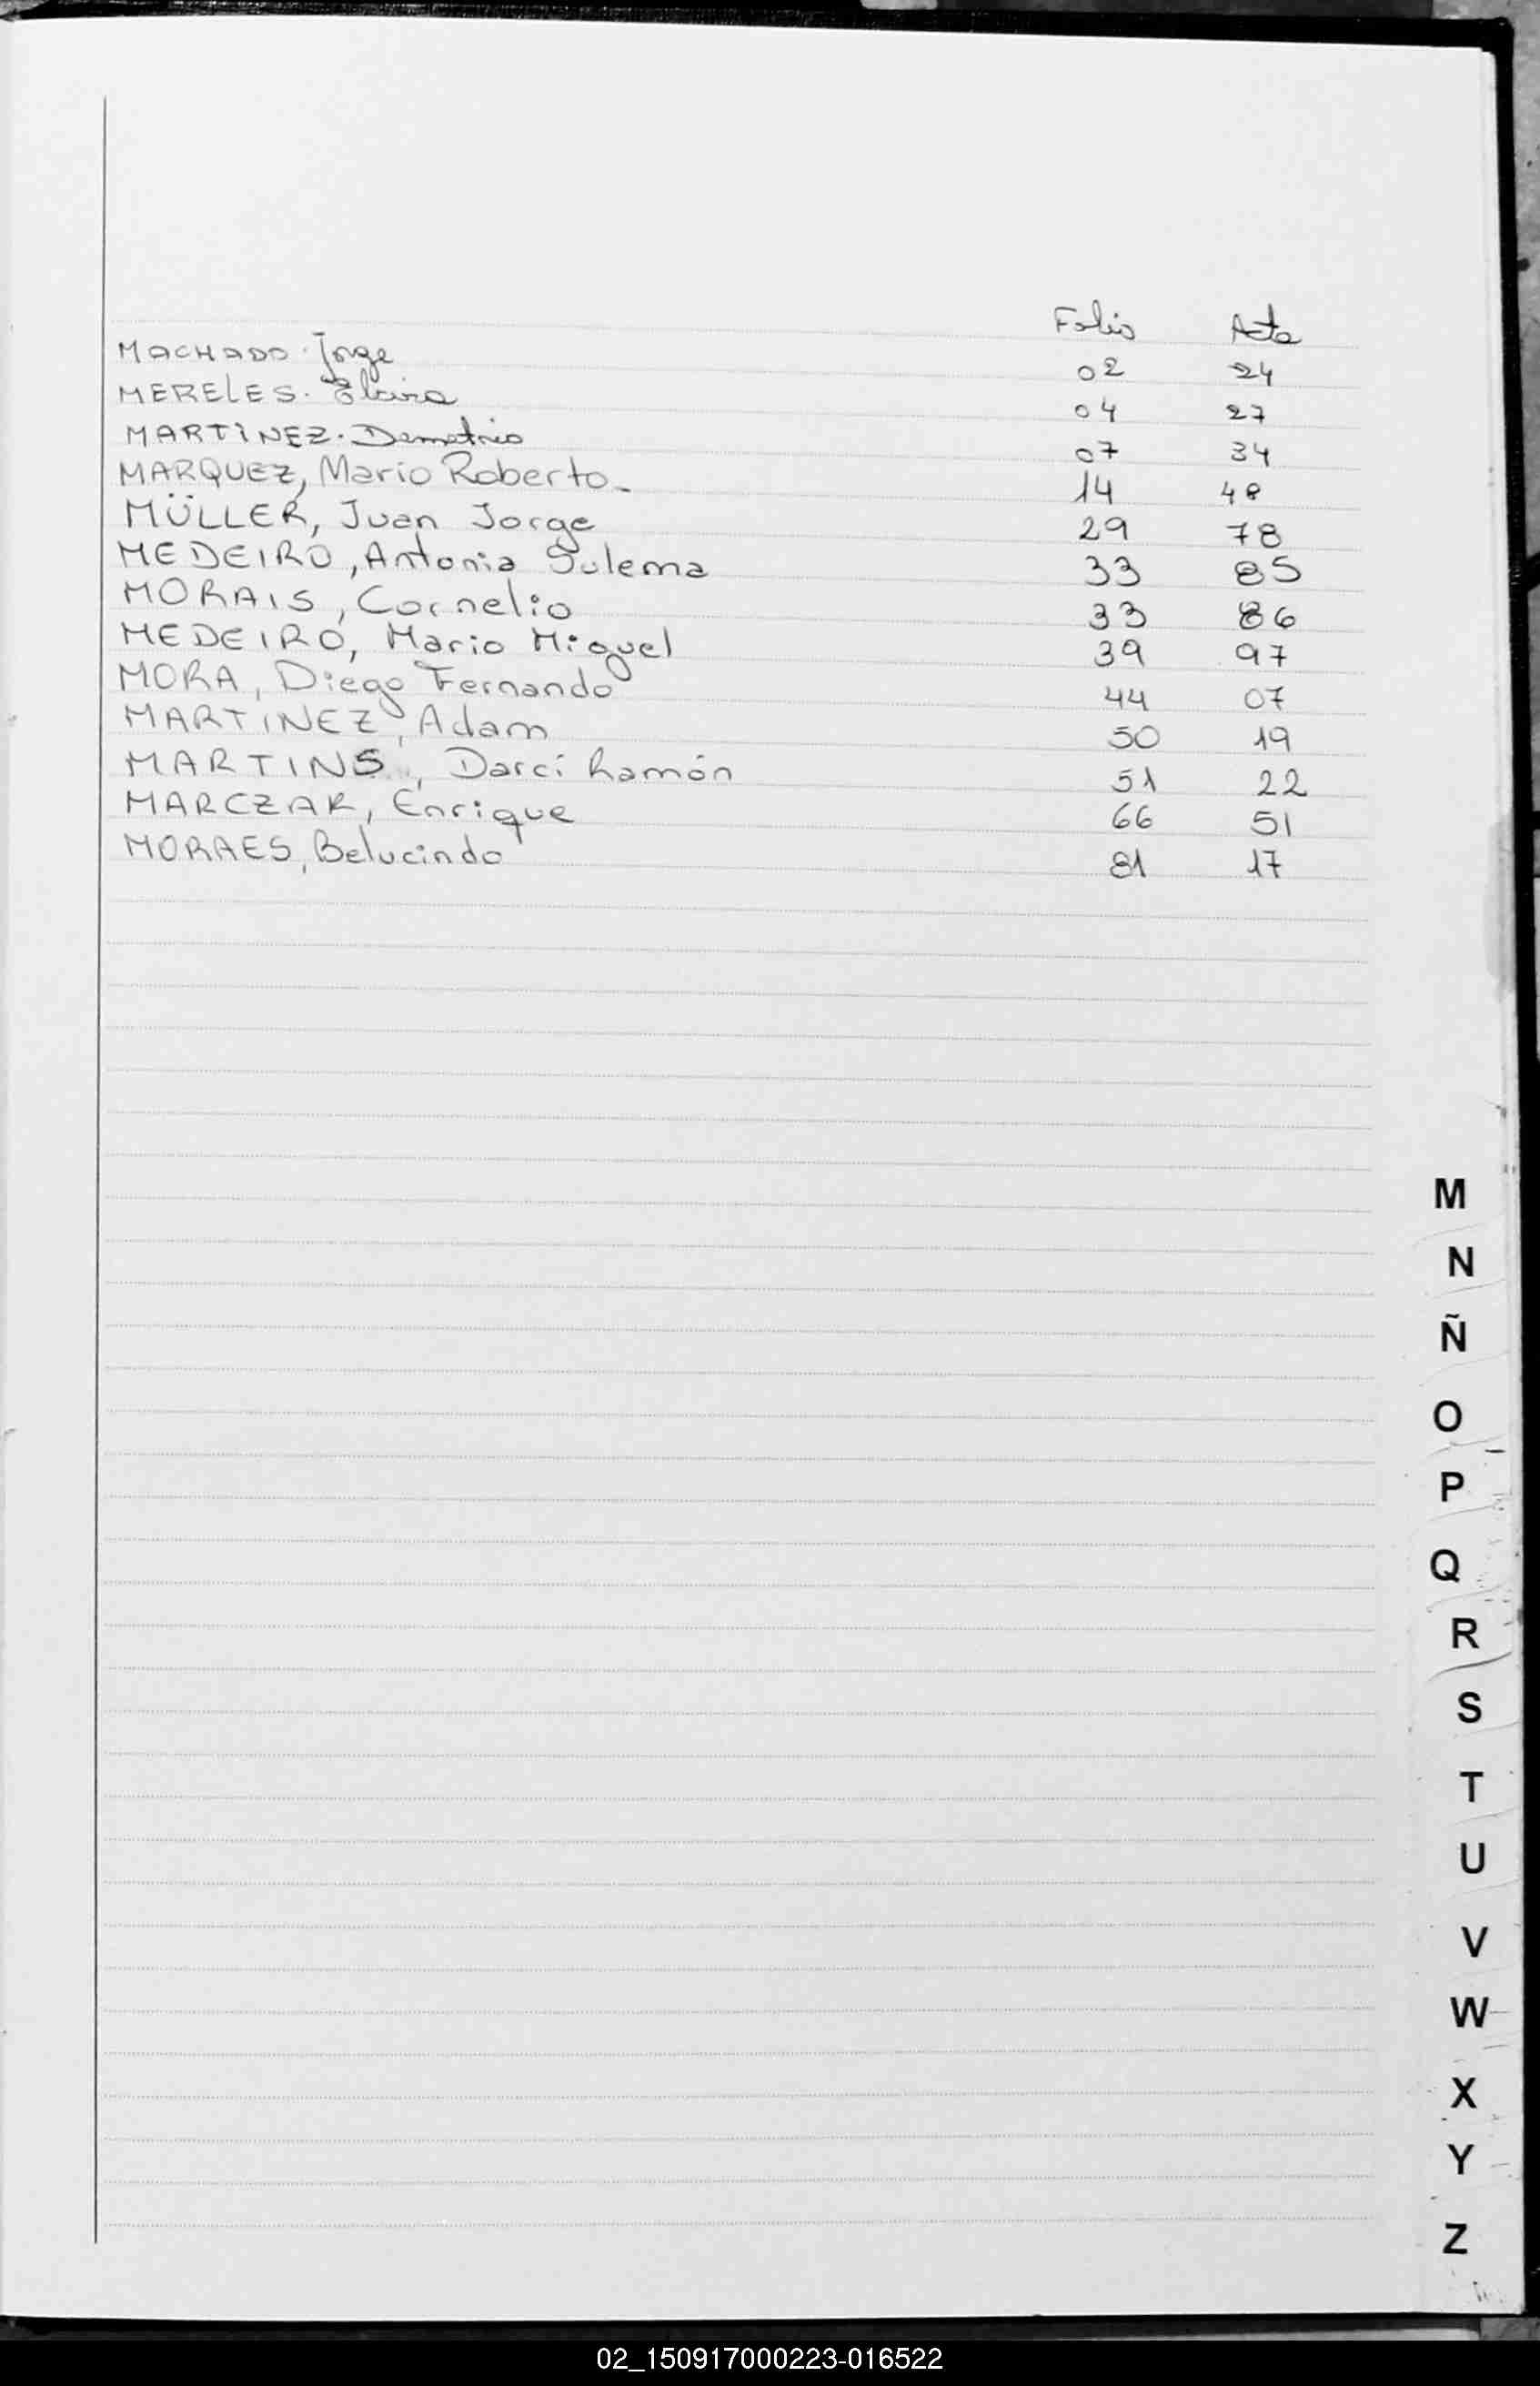 Folio Acta
MACHADO. Jorge 02 24
MERELES. Elvira 04 27
MARTINEZ. Demetrio 07 34
MARQUEZ, Mario Roberto- 14 48
MÜLLER, Juan Jorge 29 78
MEDEIRO, Antonia Sulema 33 85
MORAIS, Cornelio 33 86
MEDEIRO, Mario Miguel 39 97
MORA, Diego Fernando 44 07
MARTINEZ, Adam 50 19
MARTINS, Darcí Ramón 51 22
MARCZAK, Enrique 66 51
MORAES, Belucindo 81 17
M
N
Ñ
O
P
Q
R
S
T
U
V
W
X
Y
Z
02_150917000223-016522